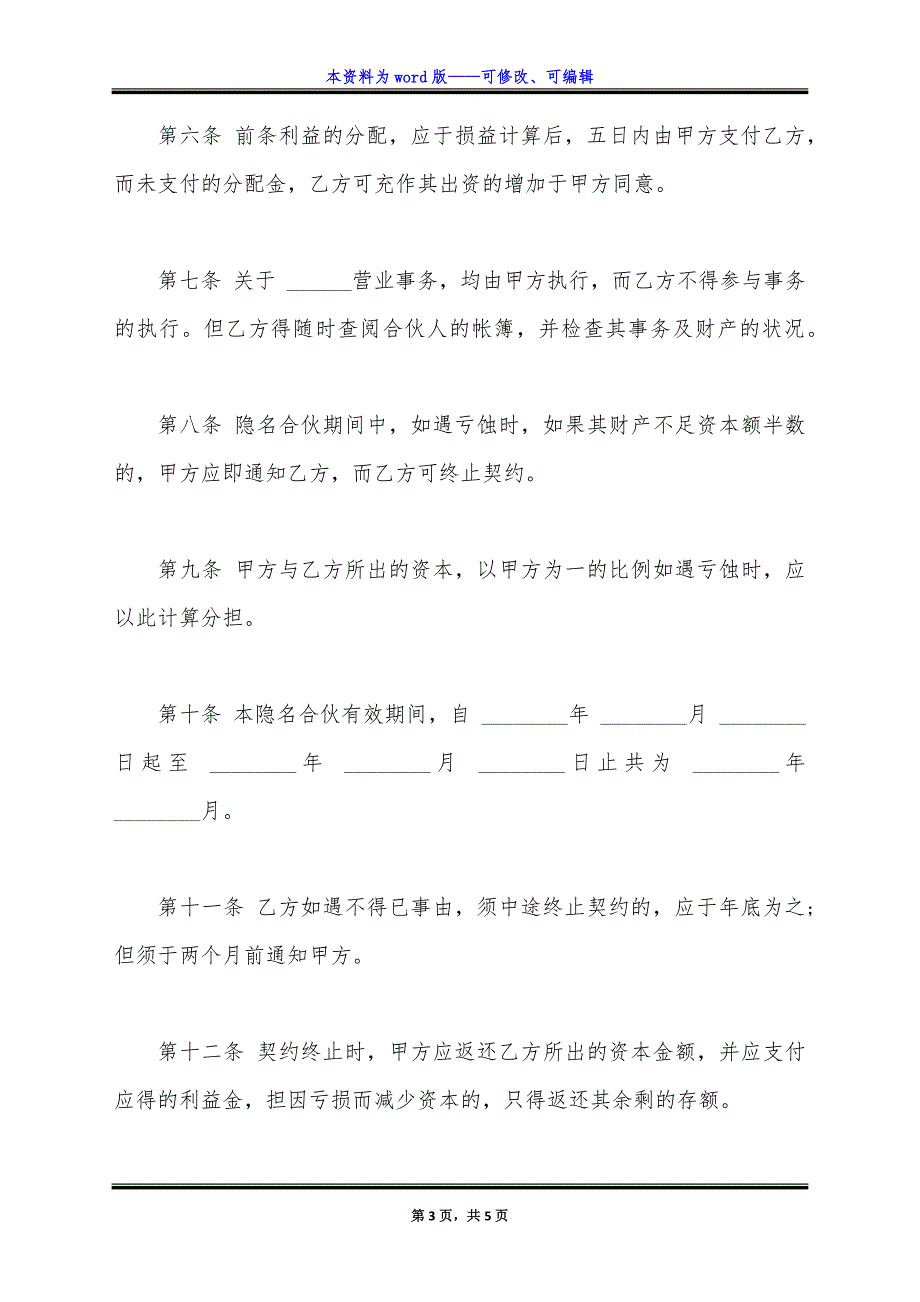 本资料为 word 版——可修改、可编辑
第六条 前条利益的分配，应于损益计算后，五日内由甲方支付乙方，
而未支付的分配金，乙方可充作其出资的增加于甲方同意。
第七条 关于 ______营业事务，均由甲方执行，而乙方不得参与事务
的执行。但乙方得随时查阅合伙人的帐簿，并检查其事务及财产的状况。
第八条 隐名合伙期间中，如遇亏蚀时，如果其财产不足资本额半数
的，甲方应即通知乙方，而乙方可终止契约。
第九条 甲方与乙方所出的资本，以甲方为一的比例如遇亏蚀时，应
以此计算分担。
第十条 本隐名合伙有效期间，自 ________年 ________月 ________
日起至 ________年 ________月 ________日止共为 ________年
________月。
第十一条 乙方如遇不得已事由，须中途终止契约的，应于年底为之；
但须于两个月前通知甲方。
第十二条 契约终止时，甲方应返还乙方所出的资本金额，并应支付
应得的利益金，担因亏损而减少资本的，只得返还其余剩的存额。
第 3 页，共 5 页